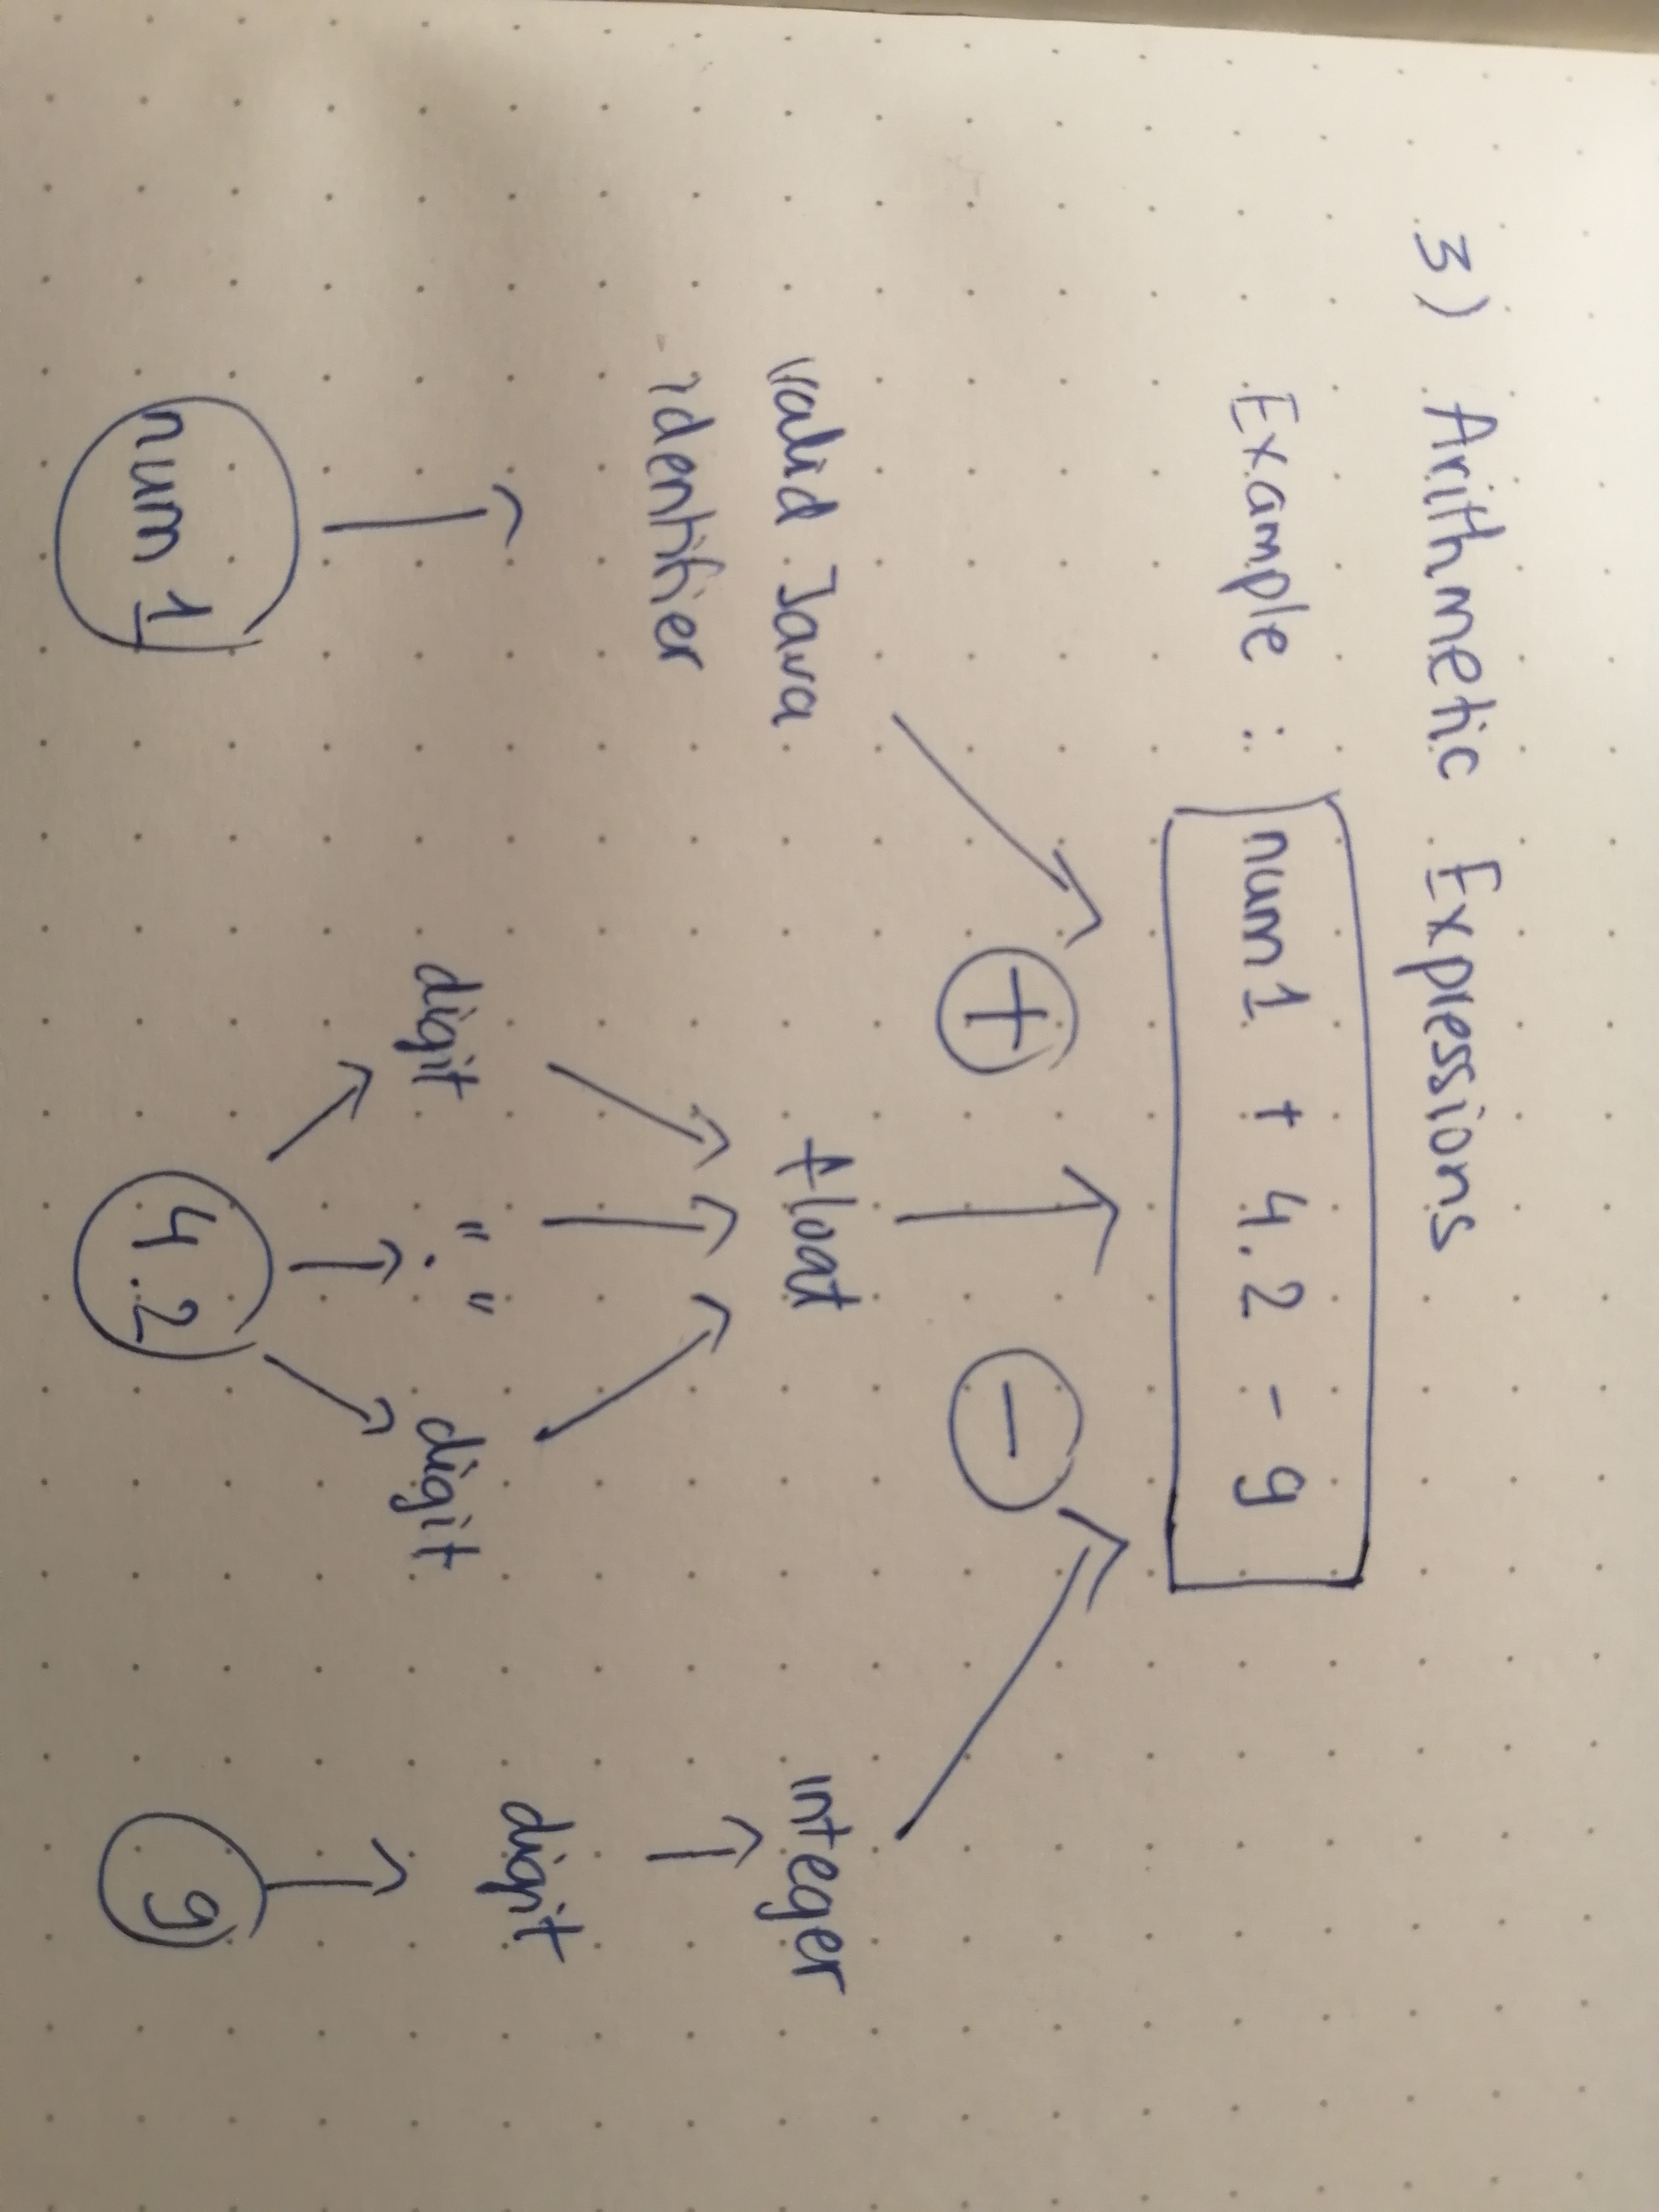 3) Arithmetic Expressions
Example : num1 + 4.2 - 9
+ -
valid Java float integer
identifier
digit
digit "." digit
num1 4.2 9